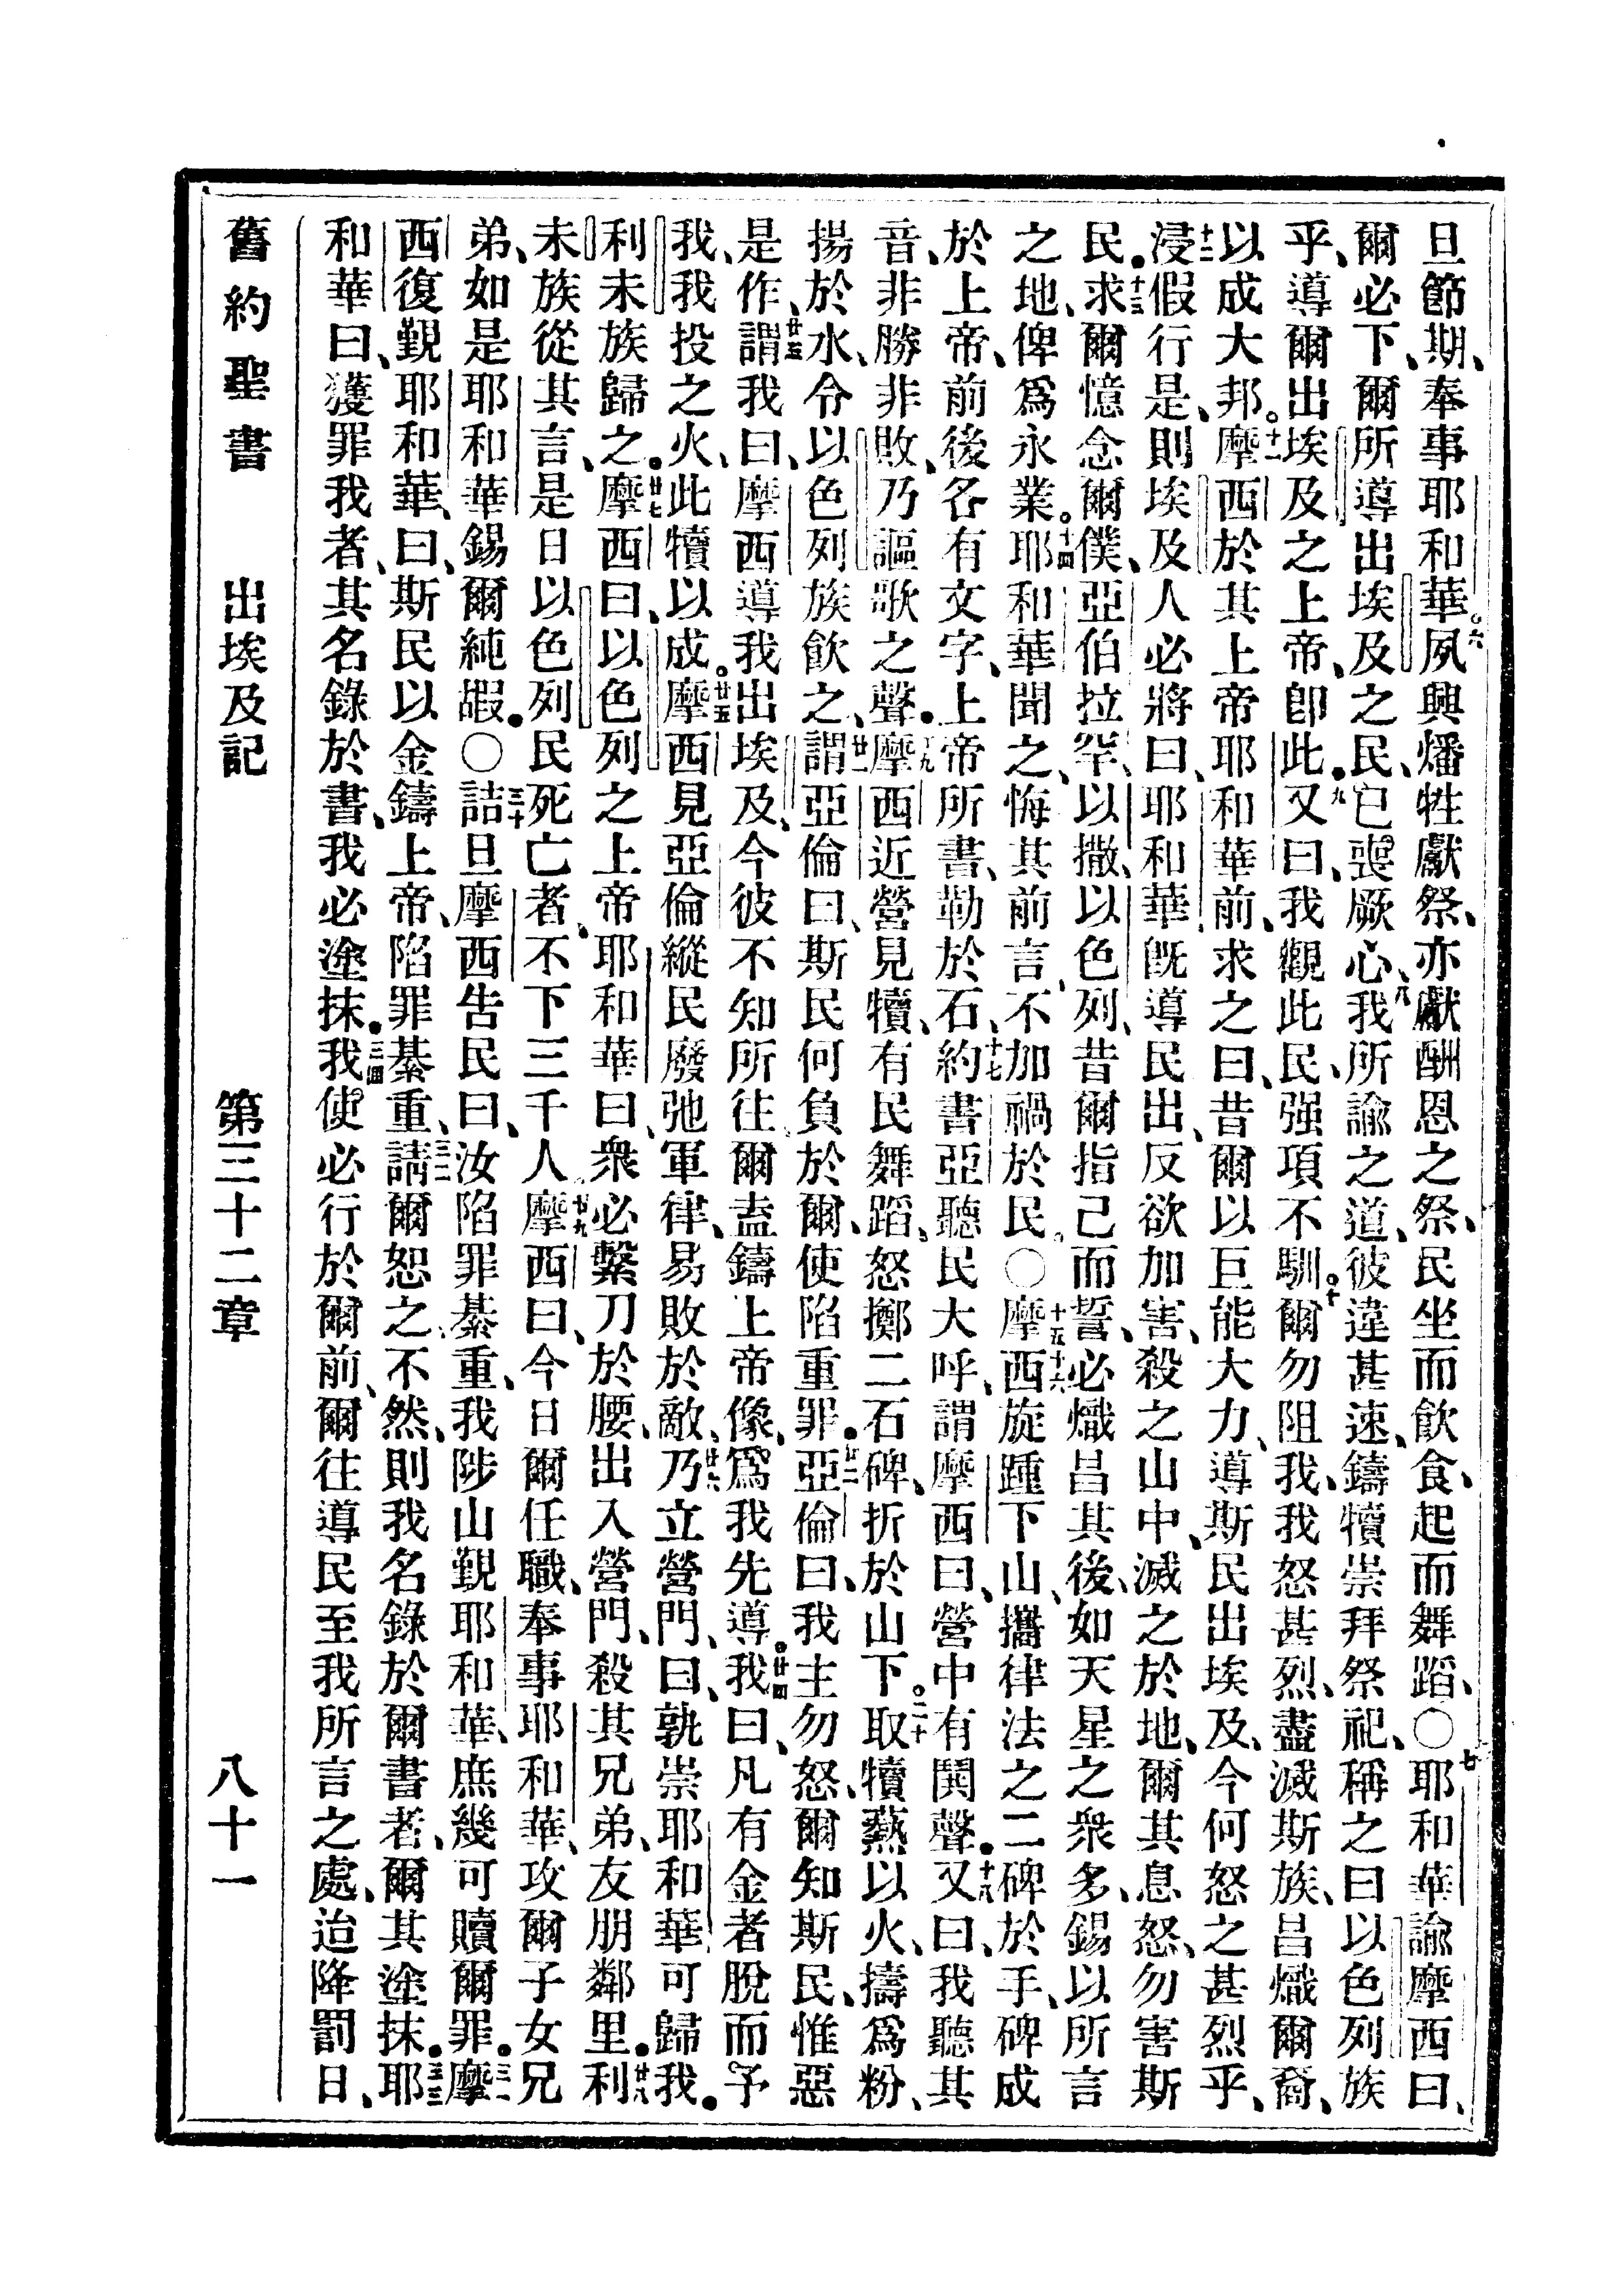 旦節期、奉事耶和華。六夙興燔牲獻祭、亦獻酬恩之祭、民坐而飲食、起而舞蹈、〇七耶和華諭摩西曰、
爾必下、爾所導出埃及之民、已喪厥心、八我所諭之道、彼違甚速、鑄犢崇拜祭祀、稱之曰以色列族
乎、導爾出埃及之上帝、卽此。九又曰、我觀此民、强項不馴。十爾勿阻我、我怒甚烈、盡滅斯族、昌熾爾裔、
以成大邦。十一摩西於其上帝耶和華前、求之曰、昔爾以巨能大力、導斯民出埃及、今何怒之甚烈乎、
十二浸假行是、則埃及人必將曰、耶和華旣導民出、反欲加害、殺之山中、滅之於地、爾其息怒、勿害斯
民。十三求爾憶念爾僕、亞伯拉罕、以撒、以色列、昔爾指己而誓、必熾昌其後、如天星之衆多、錫以所言
之地、俾爲永業。十四耶和華聞之、悔其前言、不加禍於民。〇十五十六摩西旋踵下山、攜律法之二碑於手、碑成
於上帝、前後名有文字、上帝所書、勒於石、十七約書亞聽民大呼、謂摩西曰、營中有鬨聲。十八又曰、我聽其
音、非勝非敗、乃謳歌之聲。十九摩西近營見犢、有民舞蹈、怒擲二石碑、折於山下。二十取犢爇以火、擣爲粉、
揚於水、令以色列族飮之、廿一謂亞倫曰、斯民何負於爾、使陷重罪。廿二亞倫曰、我主勿怒、爾知斯民、惟惡
是作、廿三謂我曰、摩西導我出埃及、今彼不知所往、爾盍鑄上帝像、爲我先導。廿四我曰、凡有金者脫而予
我、我投之火、此犢以成。廿五摩西見亞倫縱民廢弛軍律、易敗於敵、廿六乃立營門、曰、孰崇耶和華可歸我。
利未族歸之。廿七摩西曰、以色列之上帝耶和華曰、衆必繫刀於腰、出入營門、殺其兄弟、友朋鄰里。廿八利
未族從其言、是日以色列民死亡者、不下三千人。廿九摩西曰、今日爾任職、奉事耶和華、攻爾子女兄
弟、如是耶和華錫爾純嘏。〇三十詰旦摩西告民曰、汝陷罪綦重、我陟山覲耶和華、庶幾可贖爾罪。三一摩
西復覲耶和華、曰、斯民以金鑄上帝、陷罪綦重、三二請爾恕之、不然、則我名錄於爾書者、爾其塗抹。三三耶
和華曰、獲罪我者、其名錄於書、我必塗抹。三四我使必行於爾前、爾往導民至我所言之處、迨降罰日、
舊約聖書 出埃及記 第三十二章 八十一